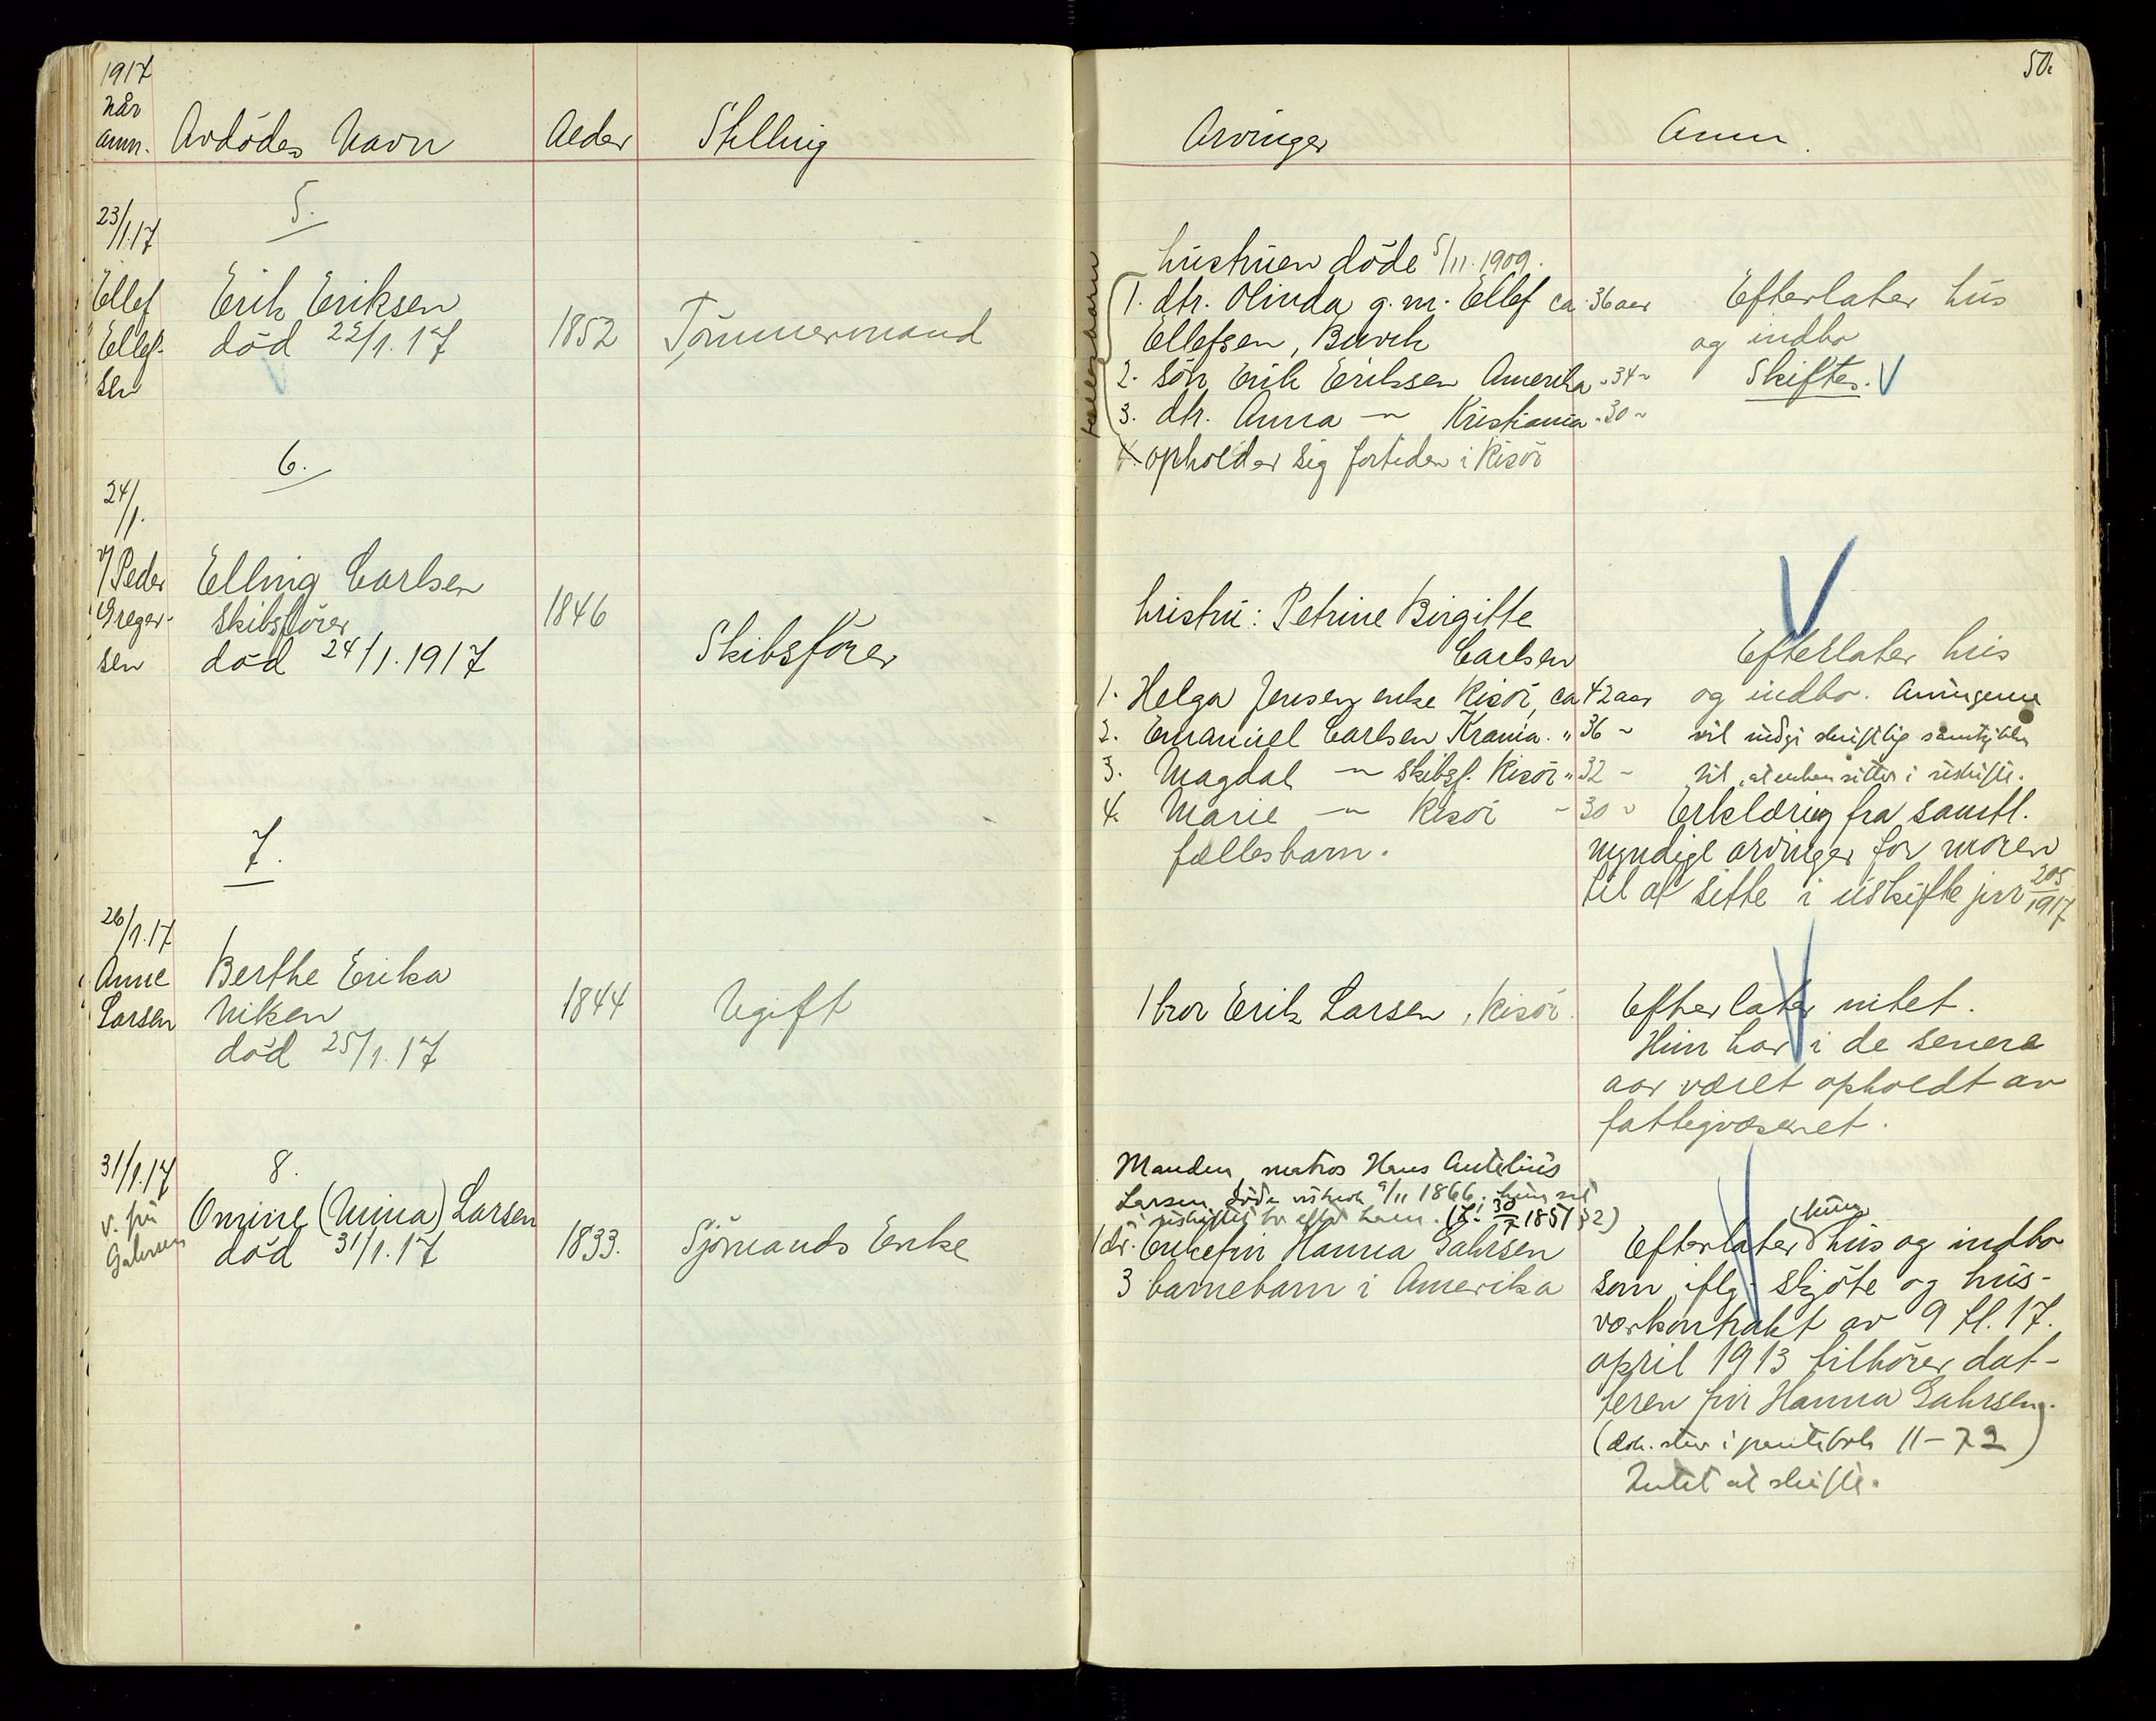 1917
Når
anm.
Avdødes Navn
Alder
Stilling
Arvinger
Anm.
50.
5.
23/1.17
Ellef
Ellef-
sen
Erik Eriksen
død 22/1.17
1852
Tømmermand
fællesbarn
hustruen døde 5/11.1909.
1. dtr. Olinda g.m. Ellef ca 36 aar
Ellefsen, Buvik
2. søn Erik Eriksen Amerika - 34 ~
3. dtr. Anna — Kristiania - 30 ~
opholder sig fortiden i Risør
Efterlater hus
og indbo
Skiftes. V
6.
24/1.
v/Peder
Greger-
sen
Elling Carlsen
Skibsfører
død 24/1.1917
1846
Skibsfører
hustru: Petrine Birgitte
Carlsen
1. Helga Jensen enke Risør, ca 42 aar
2. Emanuel Carlsen Krania. " 36 ~
3. Magdal — Skibsf. Risør " 32 ~
4. Marie — Risør - 30 ~
fællesbarn.
V
Efterlater hus
og indbo. Arvingerne
vil indgi skriftlig samtykke
til, at enken sitter i uskifte.
Erklæring fra samtl.
myndige arvinger for moren
til at sitte i uskifte jnr 205/1917
7.
26/1.17
Anne
Larsen
Berthe Erika
Niken
død 25/1.17
1844
Ugift
1 bror Erik Larsen, Risør.
Efterlater intet.
Hun har i de senere
aar været opholdt av
fattigvæsenet.
8.
31/1.17
v. fru
Gahrsen
Omine (Mina) Larsen
død 31/1.17
1833.
Sjømands Enke
Manden, matros Hans Antelius
Larsen døde 9/11 1866. hun sat
i uskiftet bo efter ham. (L. 30/7 1851 § 2)
1 dtr. Enkefru Hanna Gahrsen
3 barnebarn i Amerika
Efterlater hus og indbo
som iflg. skjøte og hus-
værkontrakt av 9 tl. 17.
april 1913 tilhører dat-
teren fru Hanna Gahrsen.
(dok. i pantebok 11 - 72)
Intet at skifte.